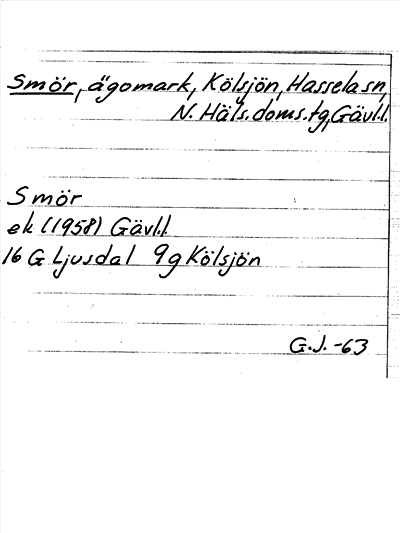 Smör, ägomark, Kölsjön, Hassela sn,
N. Häls. doms. tg, Gävl.l.
Smör
ek (1958) Gävl.l
16 G Ljusdal 9g Kölsjön
G.J. -63